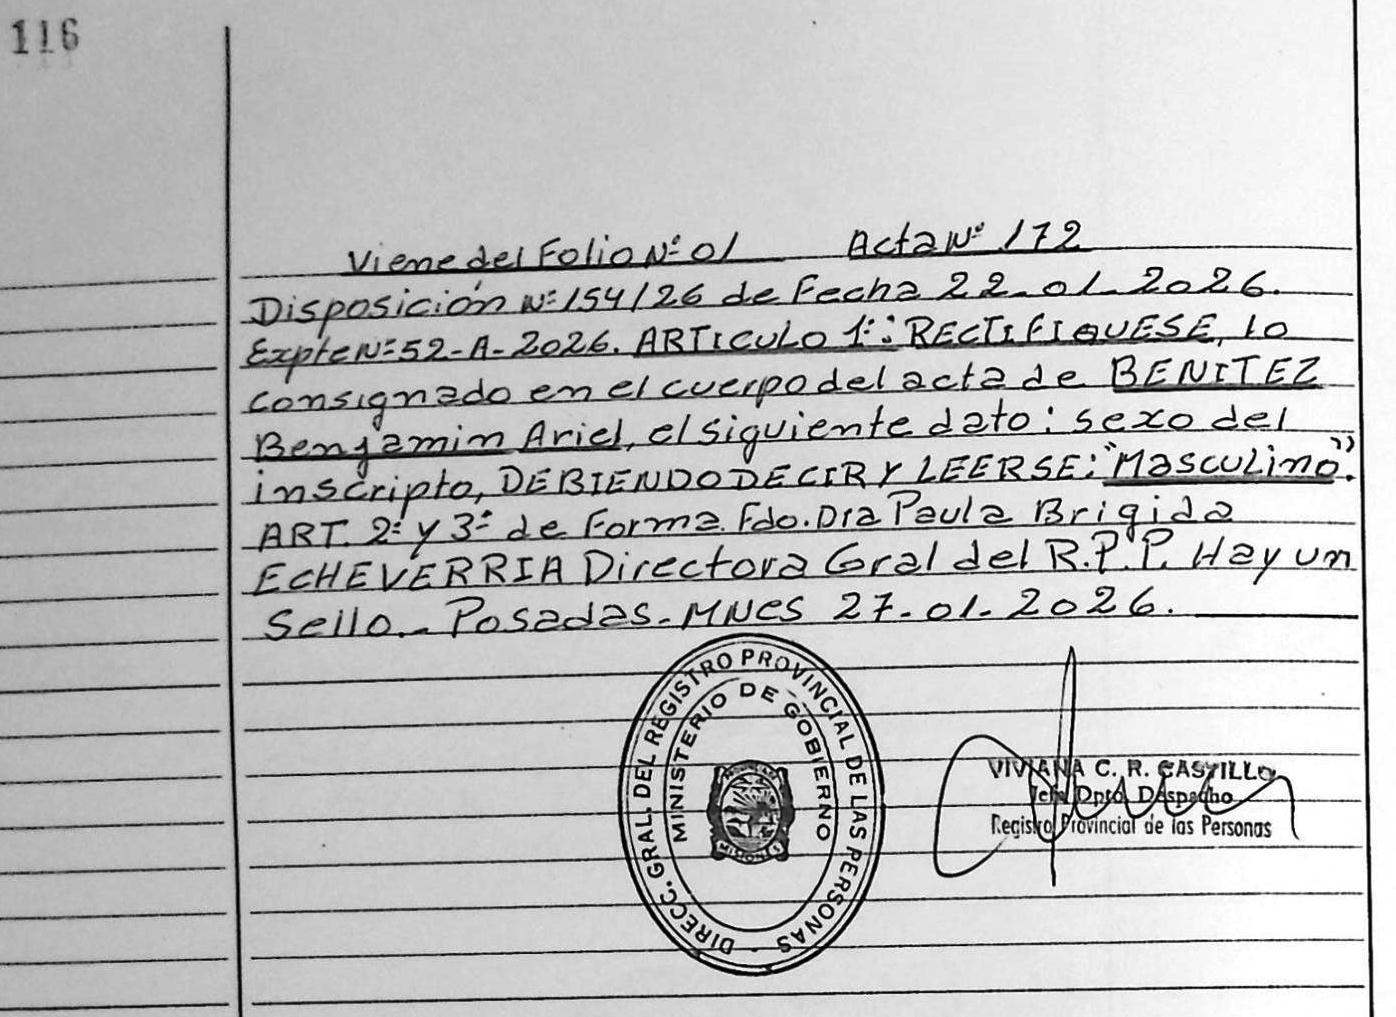 116
Viene del Folio Nº 01 Acta Nº 172
Disposición Nº 154/26 de Fecha 22-01-2026.
Expte Nº 52-A-2026. ARTICULO 1º: RECTIFIQUESE, lo
consignado en el cuerpo del acta de BENITEZ
Benjamin Ariel, el siguiente dato: sexo del
inscripto, DEBIENDO DECIR Y LEERSE: "Masculino".
ART. 2º y 3º de Forma. Fdo. Dra Paula Brigida
ECHEVERRIA Directora Gral del R.P.P. Hay un
Sello.- Posadas-MNES 27-01-2026.
DIRECC. GRAL. DEL REGISTRO PROVINCIAL DE LAS PERSONAS -
MINISTERIO DE GOBIERNO
MISIONES
VIVIANA C. R. CASTILLO
Jefa Dpto. Despacho
Registro Provincial de las Personas